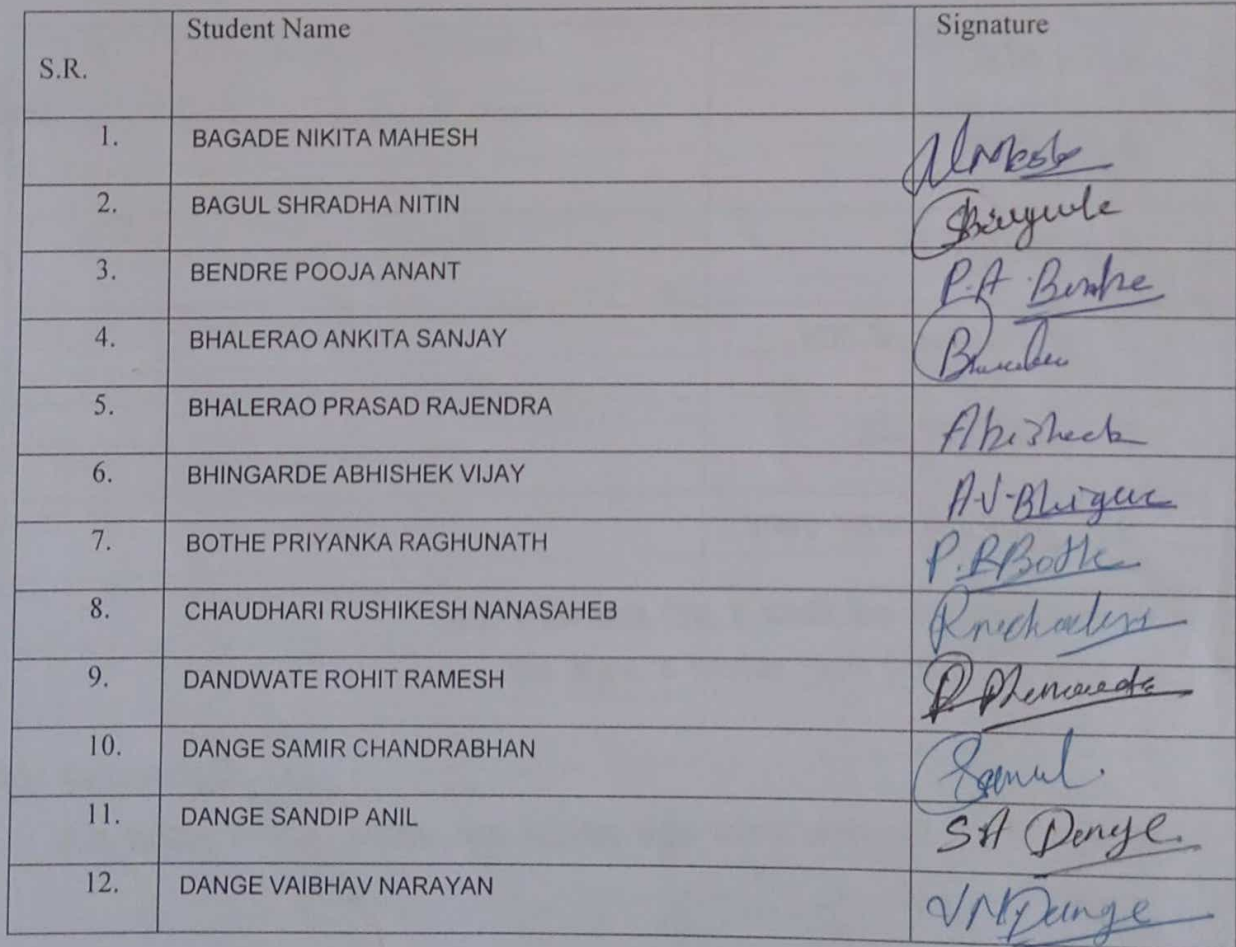 Student Name Signature
S.R.
1. BAGADE NIKITA MAHESH
2. BAGUL SHRADHA NITIN
3. BENDRE POOJA ANANT P.A. Bendre
4. BHALERAO ANKITA SANJAY
5. BHALERAO PRASAD RAJENDRA Abisheck
6. BHINGARDE ABHISHEK VIJAY A.V.
7. BOTHE PRIYANKA RAGHUNATH P.R Bothe
8. CHAUDHARI RUSHIKESH NANASAHEB
9. DANDWATE ROHIT RAMESH
10. DANGE SAMIR CHANDRABHAN
11. DANGE SANDIP ANIL SA Dange
12. DANGE VAIBHAV NARAYAN VN Dange